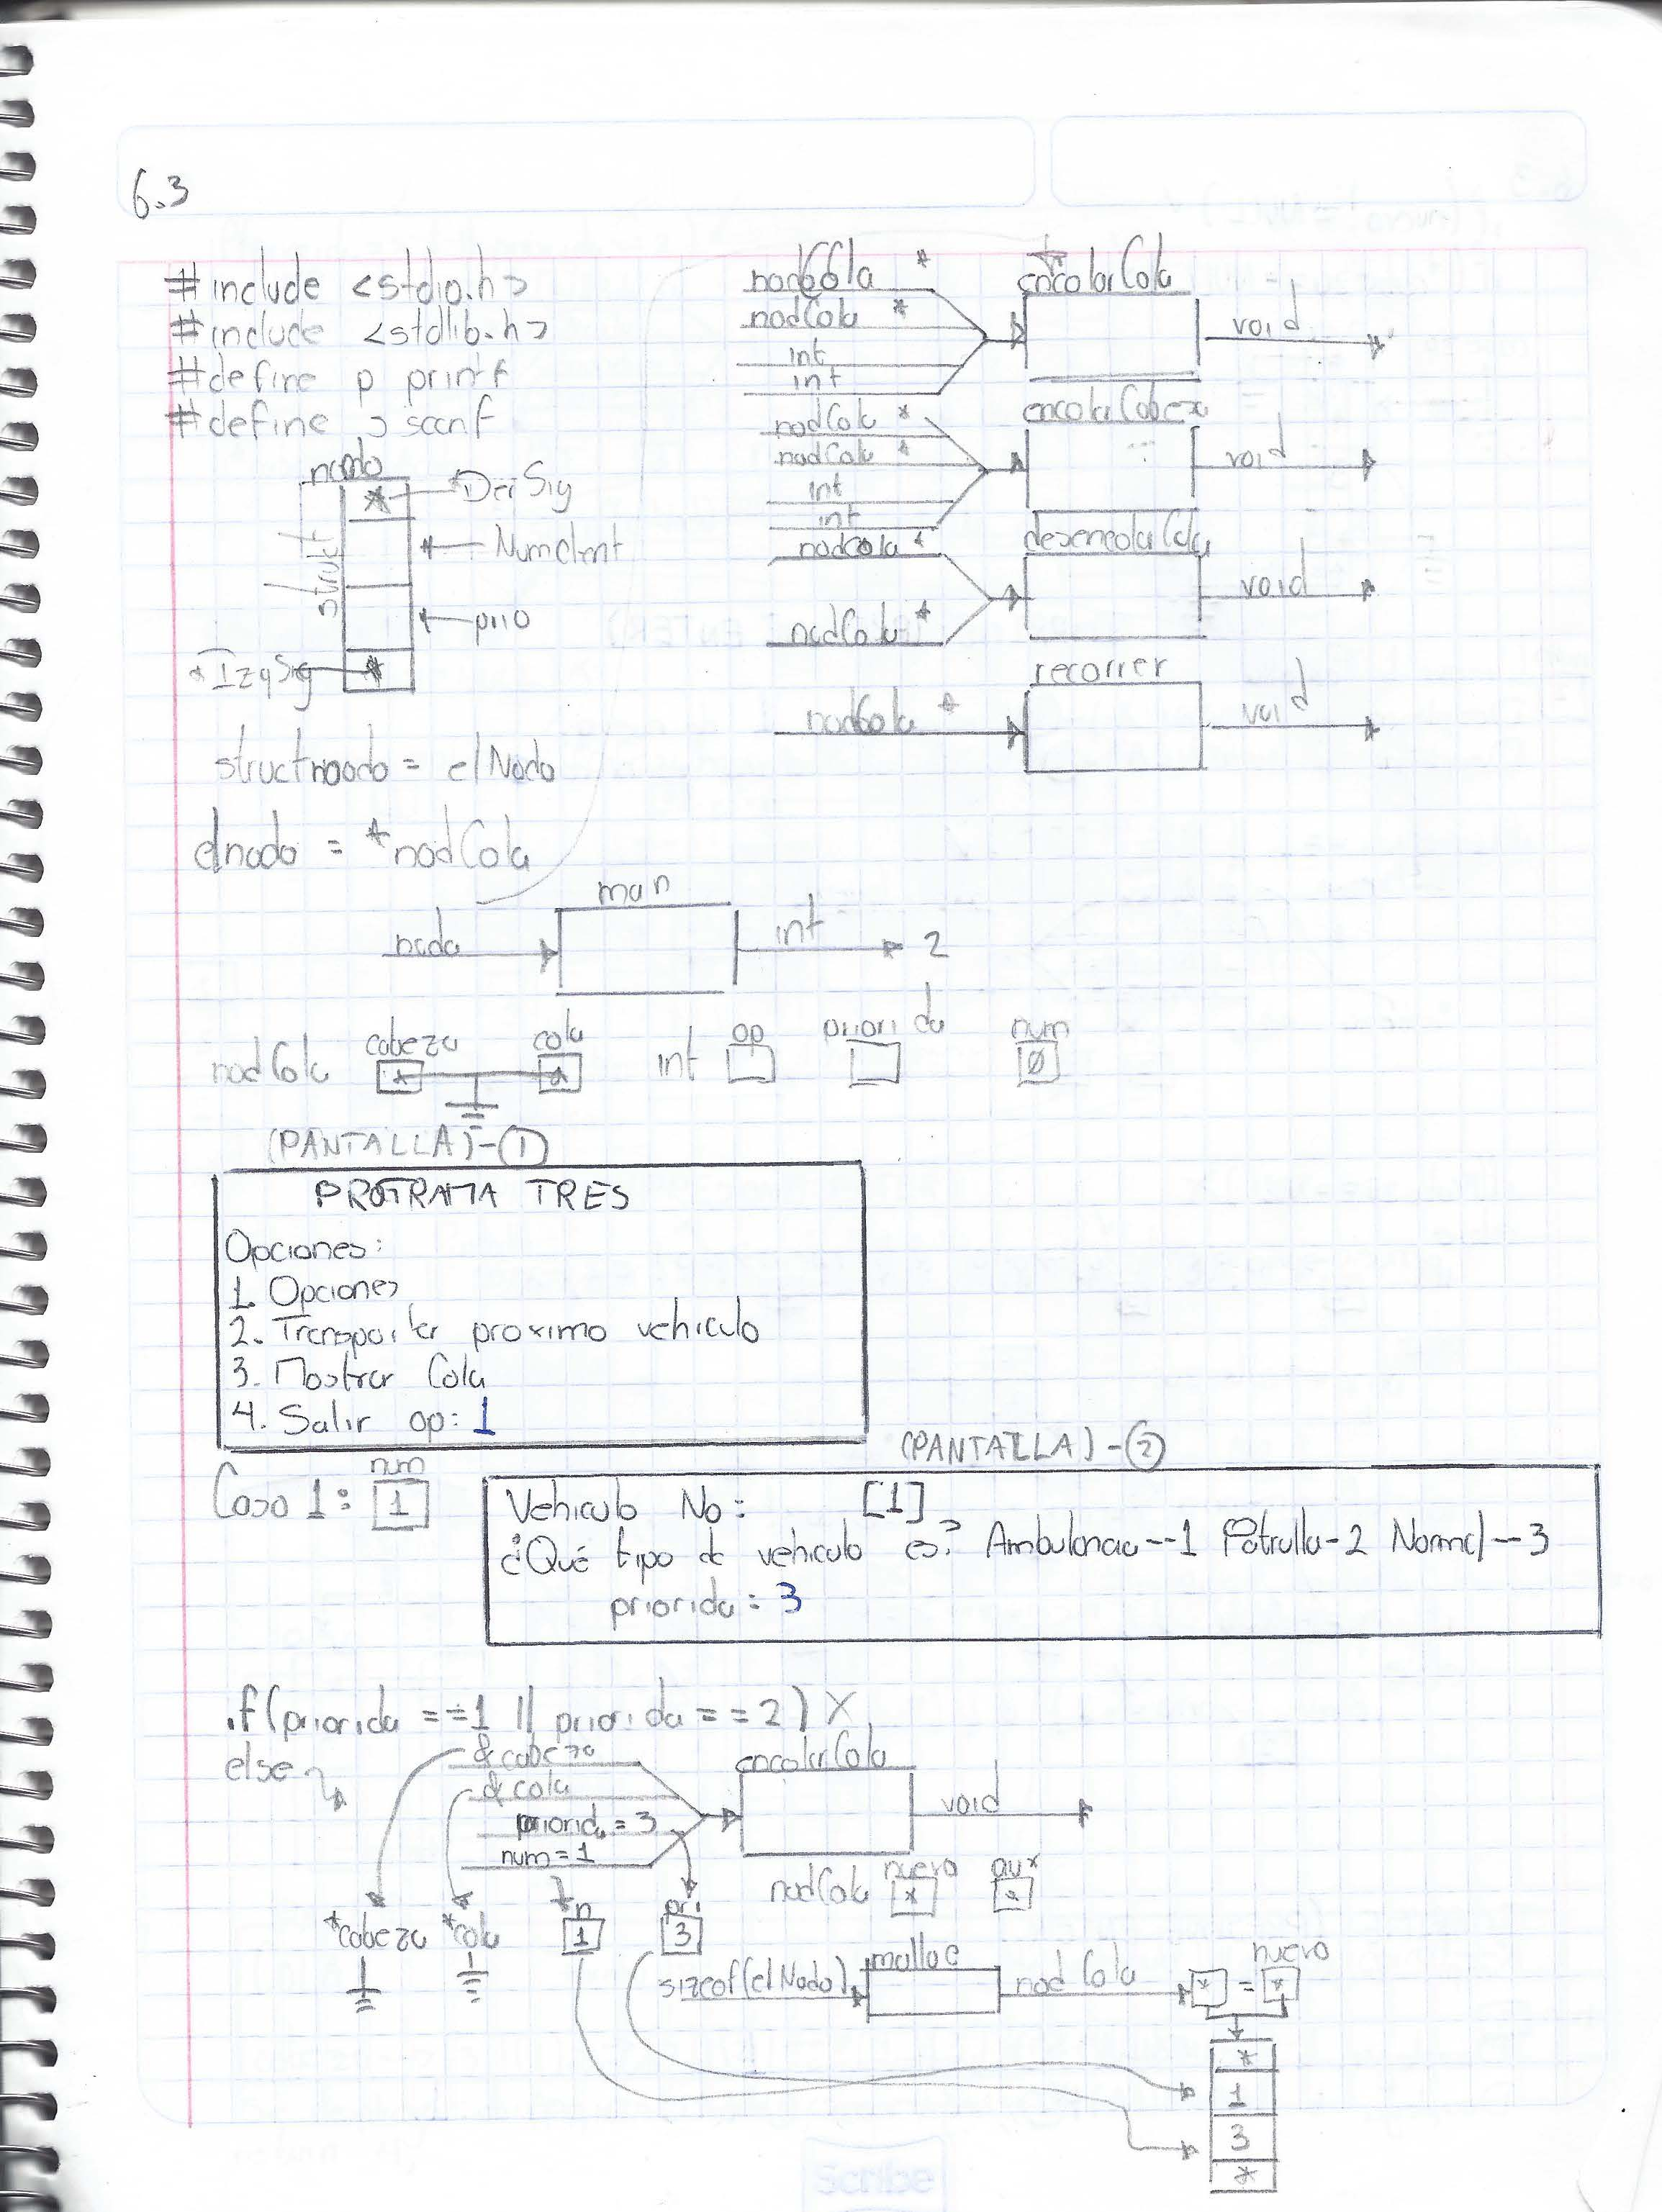 6.3
#include <stdio.h>
#include <stdlib.h>
#define p printf
#define s scanf
nodo
*DerSig
NumClient
struct
prio
*IzqSig
struct noodo = elNodo
elnodo = *nodCola
nodCola *
nodCola *
int
int
encolarCola
void
nodCola *
nodCola *
int
int
encolaCabeza
void
nodCola *
nodCola *
desencolaCola
void
nodCola *
recorrer
void
nada
main
int
2
nodCola
cabeza
*
cola
*
int
op
priorida
num
Ø
(PANTALLA)-①
PROGRAMA TRES
Opciones:
1. Opciones
2. Transportar proximo vehiculo
3. Mostrar Cola
4. Salir op: 1
(PANTALLA)-②
Caso 1:
num
1
Vehiculo No: [1]
¿Qué tipo de vehiculo es? Ambulancia--1 Patrulla-2 Normal--3
priorida = 3
if(priorida ==1 || priorida ==2) X
else
&cabeza
&cola
priorida = 3
num = 1
encolarCola
void
nodCola
nuevo
*
aux
*
*cabeza
*cola
n
1
pri
3
sizeof(elNodo)
malloc
nodCola
* = *
nuevo
*
1
3
*
Scribe